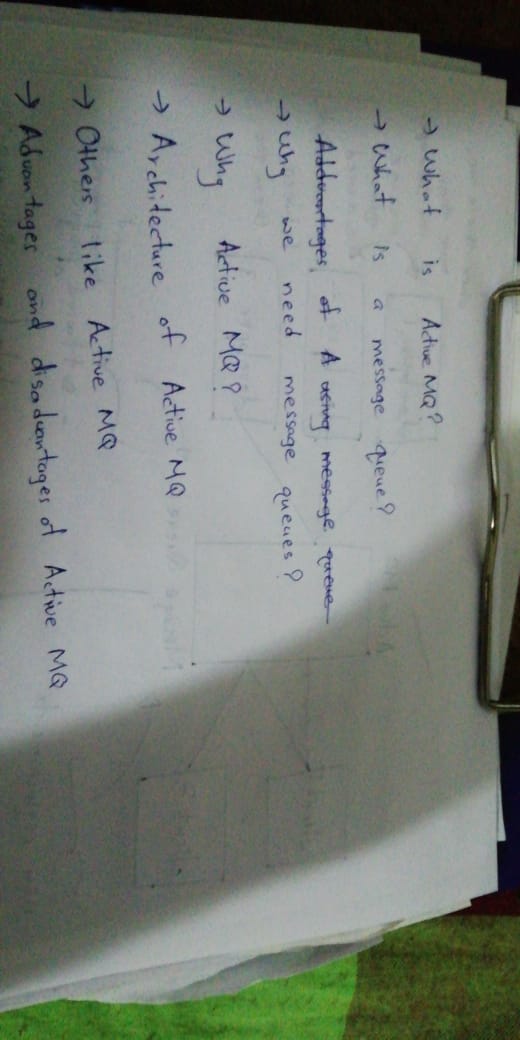 → What is Active MQ?
→ What is a message queue?
Addvantages of A using message queue
→ Why we need message queues?
→ Why Active MQ?
→ Architecture of Active MQ
→ Others like Active MQ
→ Advantages and disadvantages of Active MQ